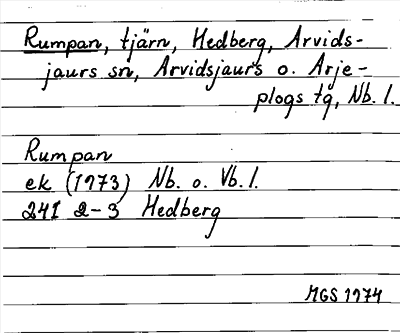 Rumpan, tjärn, Hedberg, Arvids-
jaurs sn, Arvidsjaurs o. Arje-
plogs tg, Nb. l.
Rumpan
ek (1973) Nb. o. Vb. l.
241 2-3 Hedberg
MGS 1974